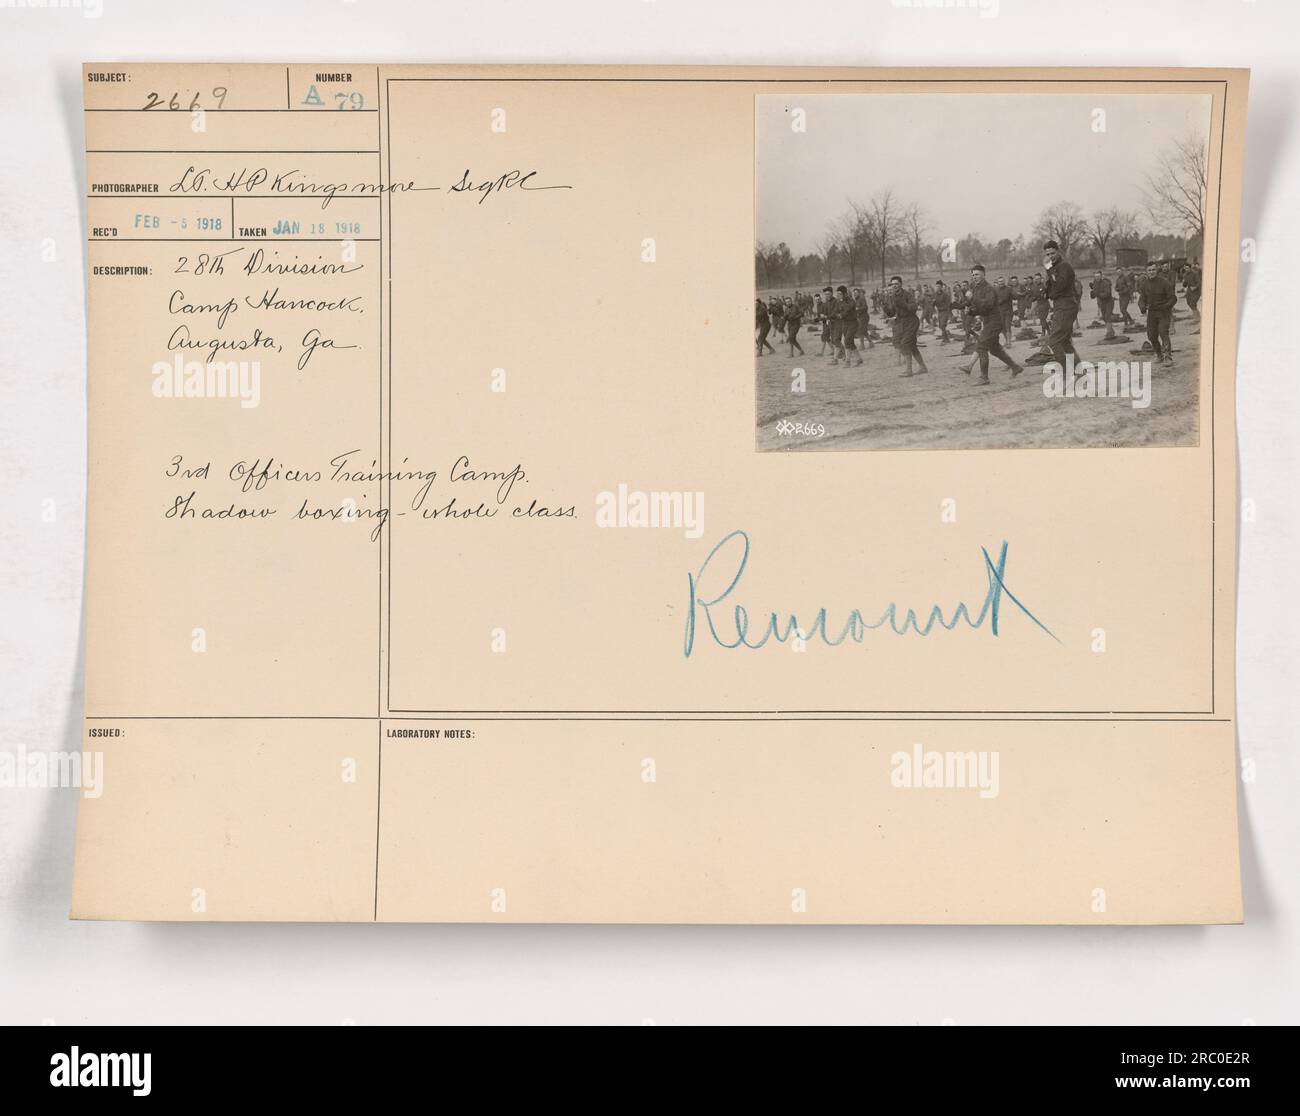 SUBJECT:
2669
NUMBER
A 79
PHOTOGRAPHER Lt. HP Kingsmore SigRC
REC'D FEB -5 1918 TAKEN JAN 18 1918
DESCRIPTION: 28th Division
Camp Hancock.
Augusta, Ga.
3rd Officers Training Camp.
Shadow boxing - whole class.
2669
Remount
ISSUED:
LABORATORY NOTES:
alamy
alamy
Image ID: 2RC0E2R
www.alamy.com